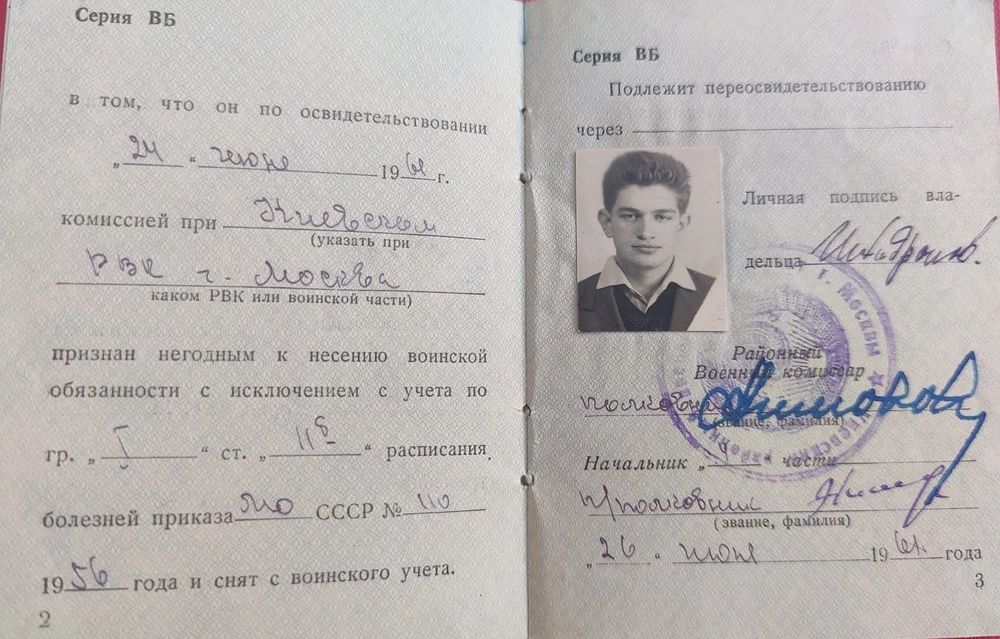 Серия ВБ
в том, что он по освидетельствовании
„24“ июня 1961 г.
комиссией при Киевском
(указать при
РВК г. Москва
каком РВК или воинской части)
признан негодным к несению воинской
обязанности с исключением с учета по
гр. „I“ ст. „11б“ расписания
болезней приказа МО СССР № 110
1956 года и снят с воинского учета.
2
Серия ВБ
Подлежит переосвидетельствованию
через
Личная подпись вла-
дельца
г. Москвы
Районный
Военный комиссар
полковник
(звание, фамилия)
Начальник „ части
П/полковник
(звание, фамилия)
„26“ июня 1961 года
3